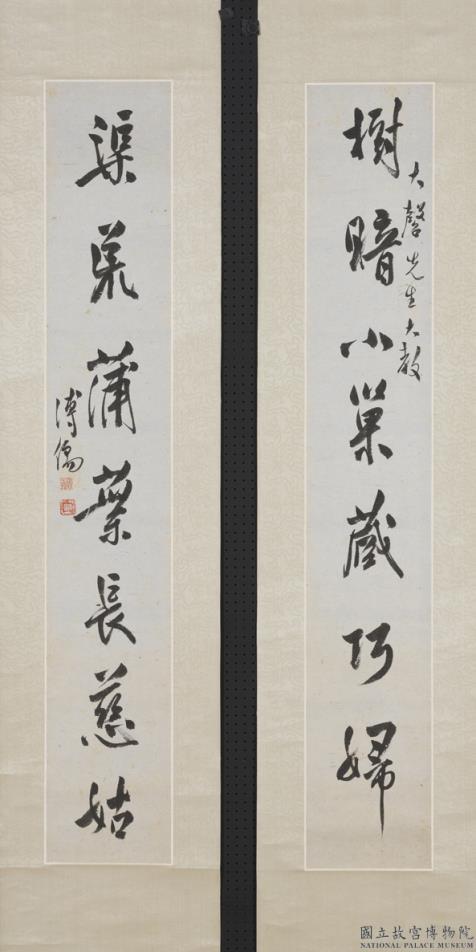 樹暗小巢藏巧婦
大先生大教
渠荒蒲葉長慈姑
溥儒
國立故宮博物院
NATIONAL PALACE MUSEUM